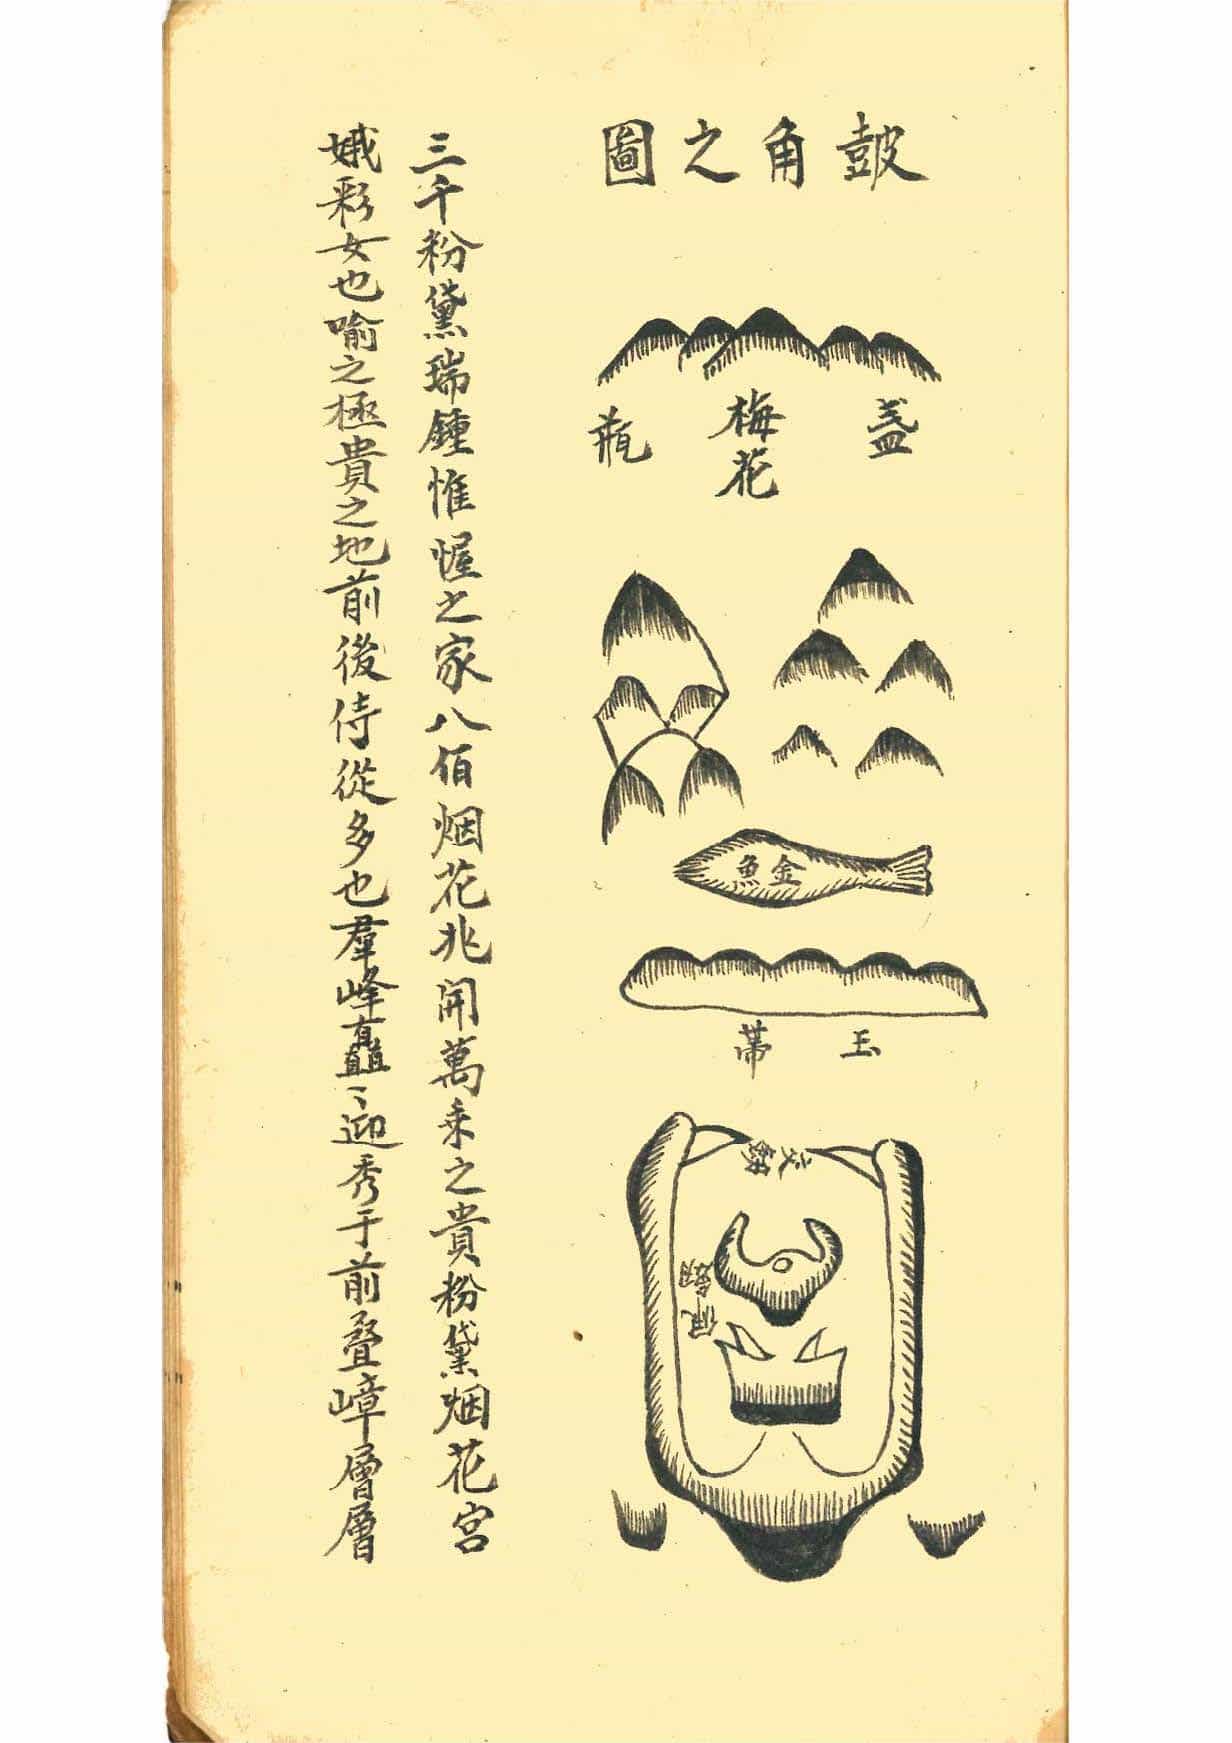 皷角之圖
盞
梅花
瓶
金魚
玉
帶
三千粉黛瑞鍾惟幄之家八佰烟花兆開萬乗之貴粉黛烟花宮
娥彩女也喻之極貴之地前後侍從多也羣峰矗〻迎秀于前叠嶂層層